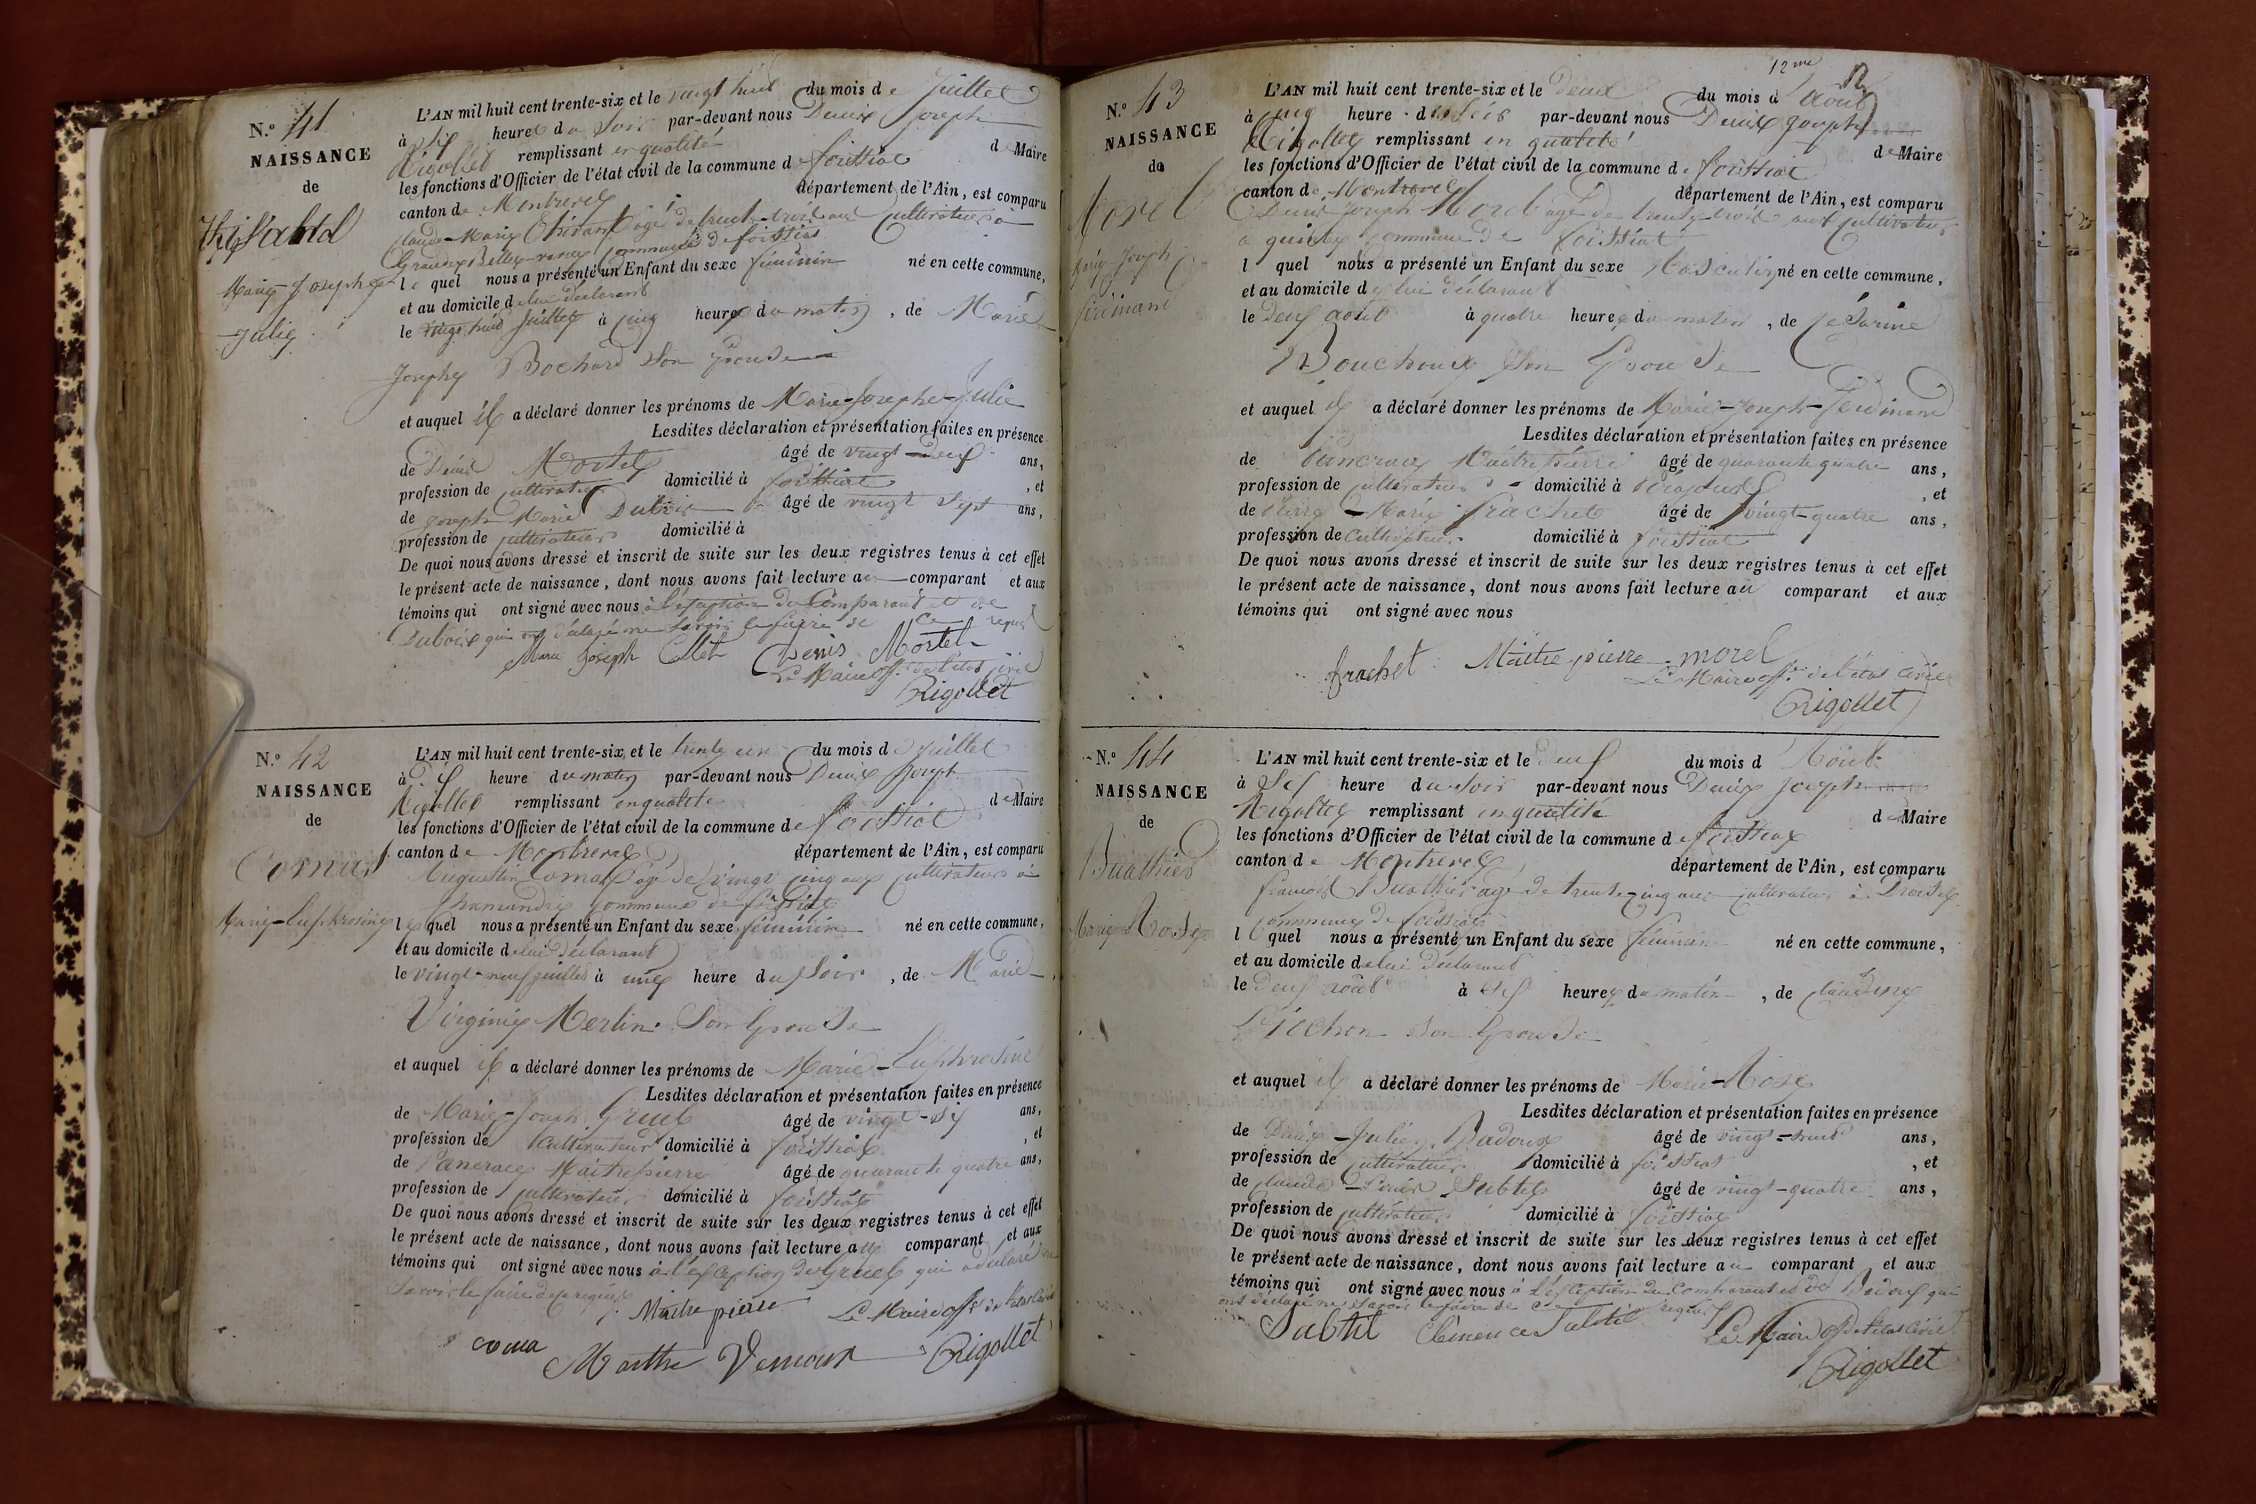 N.º 41
NAISSANCE
de
Marie-Josephe
Julie
L'AN mil huit cent trente-six et le vingt huit du mois de Juillet
à six heures du Soir par-devant nous Denis Joseph
Rigollet remplissant en qualité de Maire
les fonctions d'Officier de l'état civil de la commune de foissiat
canton de Montrevel département de l'Ain, est comparu
Claude-Marie agé de trente trois ans Cultivateur à
commune de foissiat
le quel nous a présenté un Enfant du sexe féminin né en cette commune,
et au domicile de lui déclarant
le vingt huit Juillet à cinq heures du matin, de Marie
Josephe Bochard Son Epouse
et auquel il a déclaré donner les prénoms de Marie-Josephe-Julie
Lesdites déclaration et présentation faites en présence
de Denis Mortel âgé de vingt-deux ans,
profession de cultivateur domicilié à foissiat, et
de Joseph Marie Dubois âgé de vingt Sept ans,
profession de cultivateur domicilié à
De quoi nous avons dressé et inscrit de suite sur les deux registres tenus à cet effet
le présent acte de naissance, dont nous avons fait lecture au comparant et aux
témoins qui ont signé avec nous à l'éxception du Comparant et de
Dubois qui ont déclaré ne Savoir le faire de ce requis
Marie Joseph Denis Mortel
Le Maire off. de l'état civil
Rigollet
N.º 42
NAISSANCE
de
Comas
Marie-Euphrosine
L'AN mil huit cent trente-six et le trente un du mois de Juillet
à dix heure du matin par-devant nous Denis Joseph
Rigollet remplissant en qualité de Maire
les fonctions d'Officier de l'état civil de la commune de foissiat
canton de Montrevel département de l'Ain, est comparu
Augustin Comas agé de vingt cinq ans cultivateur à
commune de foissiat
le quel nous a présenté un Enfant du sexe féminin né en cette commune,
et au domicile de lui déclarant
le vingt-neuf juillet à une heure du Soir, de Marie
Virginie Merlin Son Epouse
et auquel il a déclaré donner les prénoms de Marie-Euphrosine
Lesdites déclaration et présentation faites en présence
de Marie-Joseph Gruel âgé de vingt-six ans,
profession de Cultivateur domicilié à foissiat, et
de Pancrace Maitrepierre âgé de quarante quatre ans,
profession de cultivateur domicilié à foissiat
De quoi nous avons dressé et inscrit de suite sur les deux registres tenus à cet effet
le présent acte de naissance, dont nous avons fait lecture au comparant et aux
témoins qui ont signé avec nous à l'exception de Gruel qui a déclaré ne
Savoir le faire de ce requis
Maitre pierre Le Maire off. de l'état civil
coma Marthe Rigollet
12me
N.º 43
NAISSANCE
de
Morel
Marie-Joseph
ferdinand
L'AN mil huit cent trente-six et le deux du mois d'août
à cinq heure du Soir par-devant nous Denis Joseph
Rigollet remplissant en qualité de Maire
les fonctions d'Officier de l'état civil de la commune de foissiat
canton de Montrevel département de l'Ain, est comparu
Denis-Joseph Morel agé de trente-trois ans Cultivateur
commune de foissiat
l quel nous a présenté un Enfant du sexe Masculin né en cette commune,
et au domicile de lui déclarant
le Deux août à quatre heures du matin, de Césarine
Bouchoux Son Epouse
et auquel il a déclaré donner les prénoms de Marie-Joseph-Ferdinand
Lesdites déclaration et présentation faites en présence
de Pancrace Maitrepierre âgé de quarante quatre ans,
profession de cultivateur domicilié à, et
de Pierre-Marie frachet âgé de vingt-quatre ans,
profession de Cultivateur domicilié à foissiat
De quoi nous avons dressé et inscrit de suite sur les deux registres tenus à cet effet
le présent acte de naissance, dont nous avons fait lecture au comparant et aux
témoins qui ont signé avec nous
frachet Maitre pierre morel
Le Maire off. de l'état civil
Rigollet
N.º 44
NAISSANCE
de
Buathier
Marie-Rose
L'AN mil huit cent trente-six et le deux du mois d Août
à Six heure du Soir par-devant nous Denis Joseph
Rigollet remplissant en qualité de Maire
les fonctions d'Officier de l'état civil de la commune de foissiat
canton de Montrevel département de l'Ain, est comparu
francois Buathier agé de trente-cinq ans cultivateur à
commune de foissiat
l quel nous a présenté un Enfant du sexe féminin né en cette commune,
et au domicile de lui déclarant
le Deux août à Six heures du matin, de Claudine
Pochon Son Epouse
et auquel il a déclaré donner les prénoms de Marie-Rose
Lesdites déclaration et présentation faites en présence
de Denis-Julien Badoux âgé de vingt-huit ans,
profession de cultivateur domicilié à foissiat, et
de Claude-Denis Subtil âgé de vingt-quatre ans,
profession de cultivateur domicilié à foissiat
De quoi nous avons dressé et inscrit de suite sur les deux registres tenus à cet effet
le présent acte de naissance, dont nous avons fait lecture au comparant et aux
témoins qui ont signé avec nous à l'éxception du Comparant et de Badoux qui
ont déclaré ne Savoir le faire de ce requis
Subtil Clémence Subtil Le Maire off. de l'état Civil
Rigollet